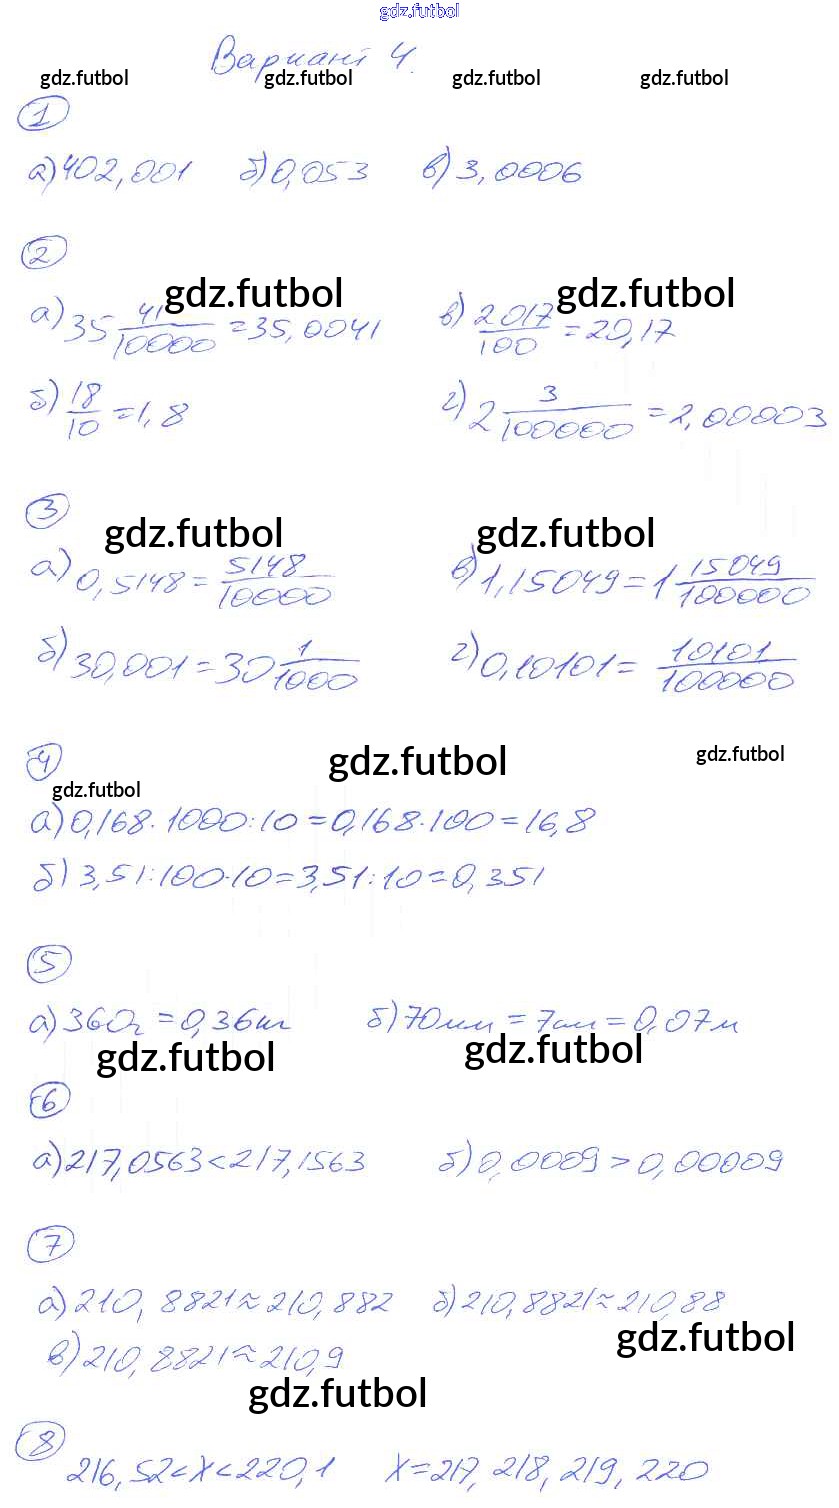 gdz.futbol
Вариант 4.
gdz.futbol gdz.futbol gdz.futbol gdz.futbol
1
а) 402,001 б) 0,053 в) 3,0006
2
gdz.futbol gdz.futbol
а) 35 41/10000 = 35,0041 в) 2017/100 = 20,17
б) 18/10 = 1,8 г) 2 3/100000 = 2,00003
3
gdz.futbol gdz.futbol
а) 0,5148 = 5148/10000 в) 1,15049 = 1 15049/100000
б) 30,001 = 30 1/1000 г) 0,10101 = 10101/100000
4
gdz.futbol gdz.futbol
gdz.futbol
а) 0,168·1000:10 = 0,168·100 = 16,8
б) 3,51:100·10 = 3,51:10 = 0,351
5
а) 360г = 0,36кг б) 70мм = 7см = 0,07м
gdz.futbol gdz.futbol
6
а) 217,0563 < 217,1563 б) 0,0009 > 0,00009
7
а) 210,8821 ≈ 210,882 б) 210,8821 ≈ 210,88
gdz.futbol
в) 210,8821 ≈ 210,9
gdz.futbol
8
216,52 < x < 220,1 x = 217, 218, 219, 220